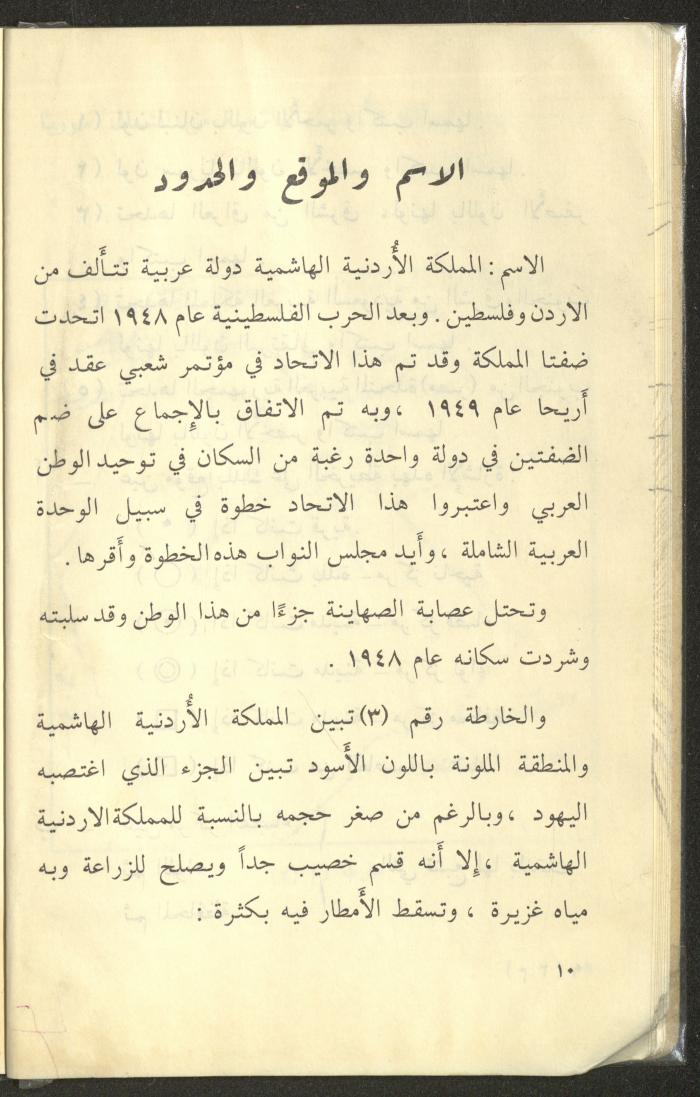 الاسم والموقع والحدود
الاسم : المملكة الأُردنية الهاشمية دولة عربية تتأَلف من
الاردن وفلسطين . وبعد الحرب الفلسطينية عام ١٩٤٨ اتحدت
ضفتا المملكة وقد تم هذا الاتحاد في مؤتمر شعبي عقد في
أَريحا عام ١٩٤٩ ، وبه تم الاتفاق بالإِجماع على ضم
الضفتين في دولة واحدة رغبة من السكان في توحيد الوطن
العربي واعتبروا هذا الاتحاد خطوة في سبيل الوحدة
العربية الشاملة ، وأَيد مجلس النواب هذه الخطوة وأَقرها .
وتحتل عصابة الصهاينة جزءًا من هذا الوطن وقد سلبته
وشردت سكانه عام ١٩٤٨ .
والخارطة رقم (٣) تبين المملكة الأُردنية الهاشمية
والمنطقة الملونة باللون الأَسود تبين الجزء الذي اغتصبه
اليهود ، وبالرغم من صغر حجمه بالنسبة للمملكة الاردنية
الهاشمية ، إِلا أَنه قسم خصيب جداً ويصلح للزراعة وبه
مياه غزيرة ، وتسقط الأَمطار فيه بكثرة :
١٠